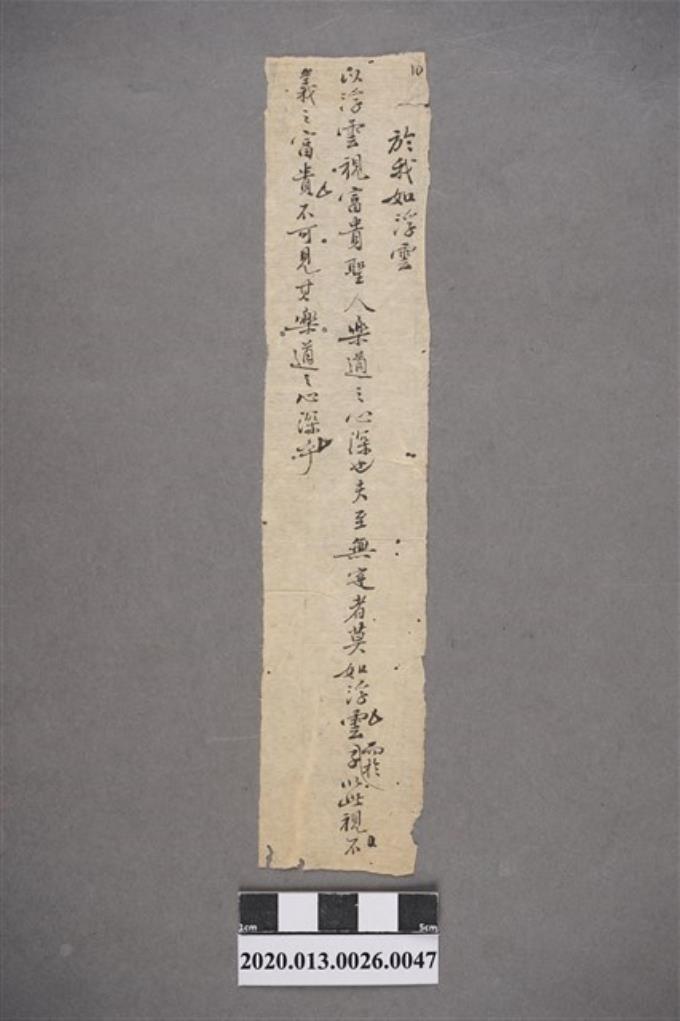 10
於我如浮雲
以浮雲視富貴聖人樂道之心深也夫至無定者莫如浮雲而於以此視不
義之富貴不可見其樂道之心深乎
1cm 5cm
2020.013.0026.0047